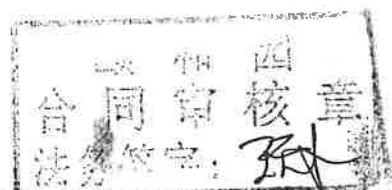 和四
合同审核章
法务签字: